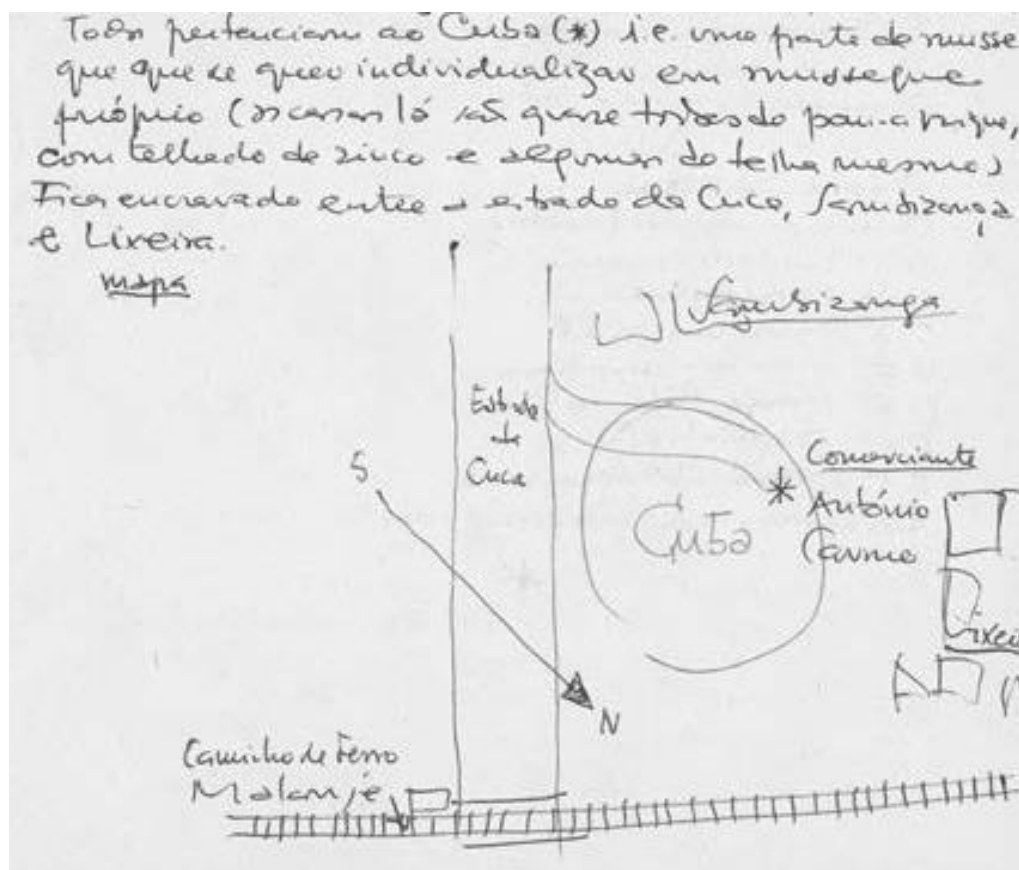 Todos pertenciam ao Cuba (*) i.e. uma parte do musse
que que se quer individualizar em musseque
próprio (as casas lá são quase todas de pau-a-pique,
com telhado de zinco e algumas de telha mesmo)
Fica encravado entre a estrada da Cuca, Sambizanga
e Lixeira.
mapa
Sambizanga
Estrada
da
Cuca
S
Comerciante
* António
Carmo
Cuba
Lixei
N
Caminho de Ferro
Malanje